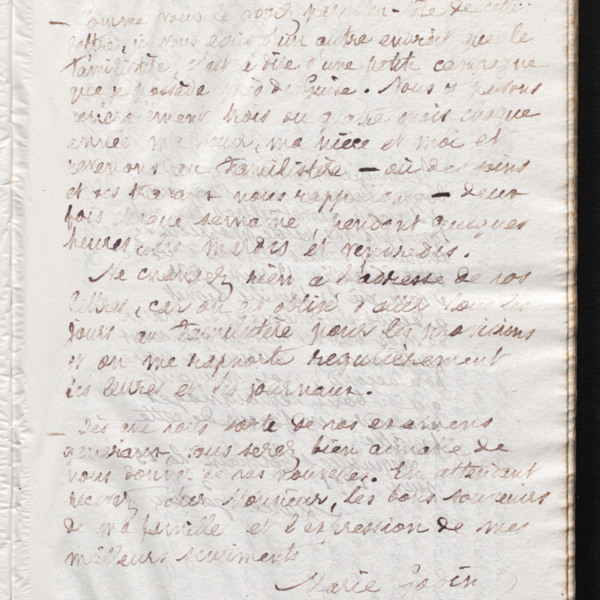 — Comme vous le voyez par l'en-tête de cette
lettre, je vous écris d'un autre endroit que le
familistère, c'est à dire d'une petite campagne
que je possède près de Guise. Nous y passons
régulièrement trois ou quatre mois chaque
année ma sœur, ma nièce et moi et
revenons au familistère — où des soins
et des travaux nous rappellent — deux
fois chaque semaine, pendant quelques
heures, les mardis et vendredis.
Ne changez rien à l'adresse de vos
lettres, car on est obligé d'aller tous les
jours au familistère pour les provisions
et on me rapporte régulièrement
les lettres et les journaux.
— Dès que vous sorte de vos examens
vous serez bien aimable de
vous donner de vos nouvelles. En attendant
recevez, cher Monsieur, les bons souvenirs
de ma famille et l'expression de mes
meilleurs sentiments
Marie Godin